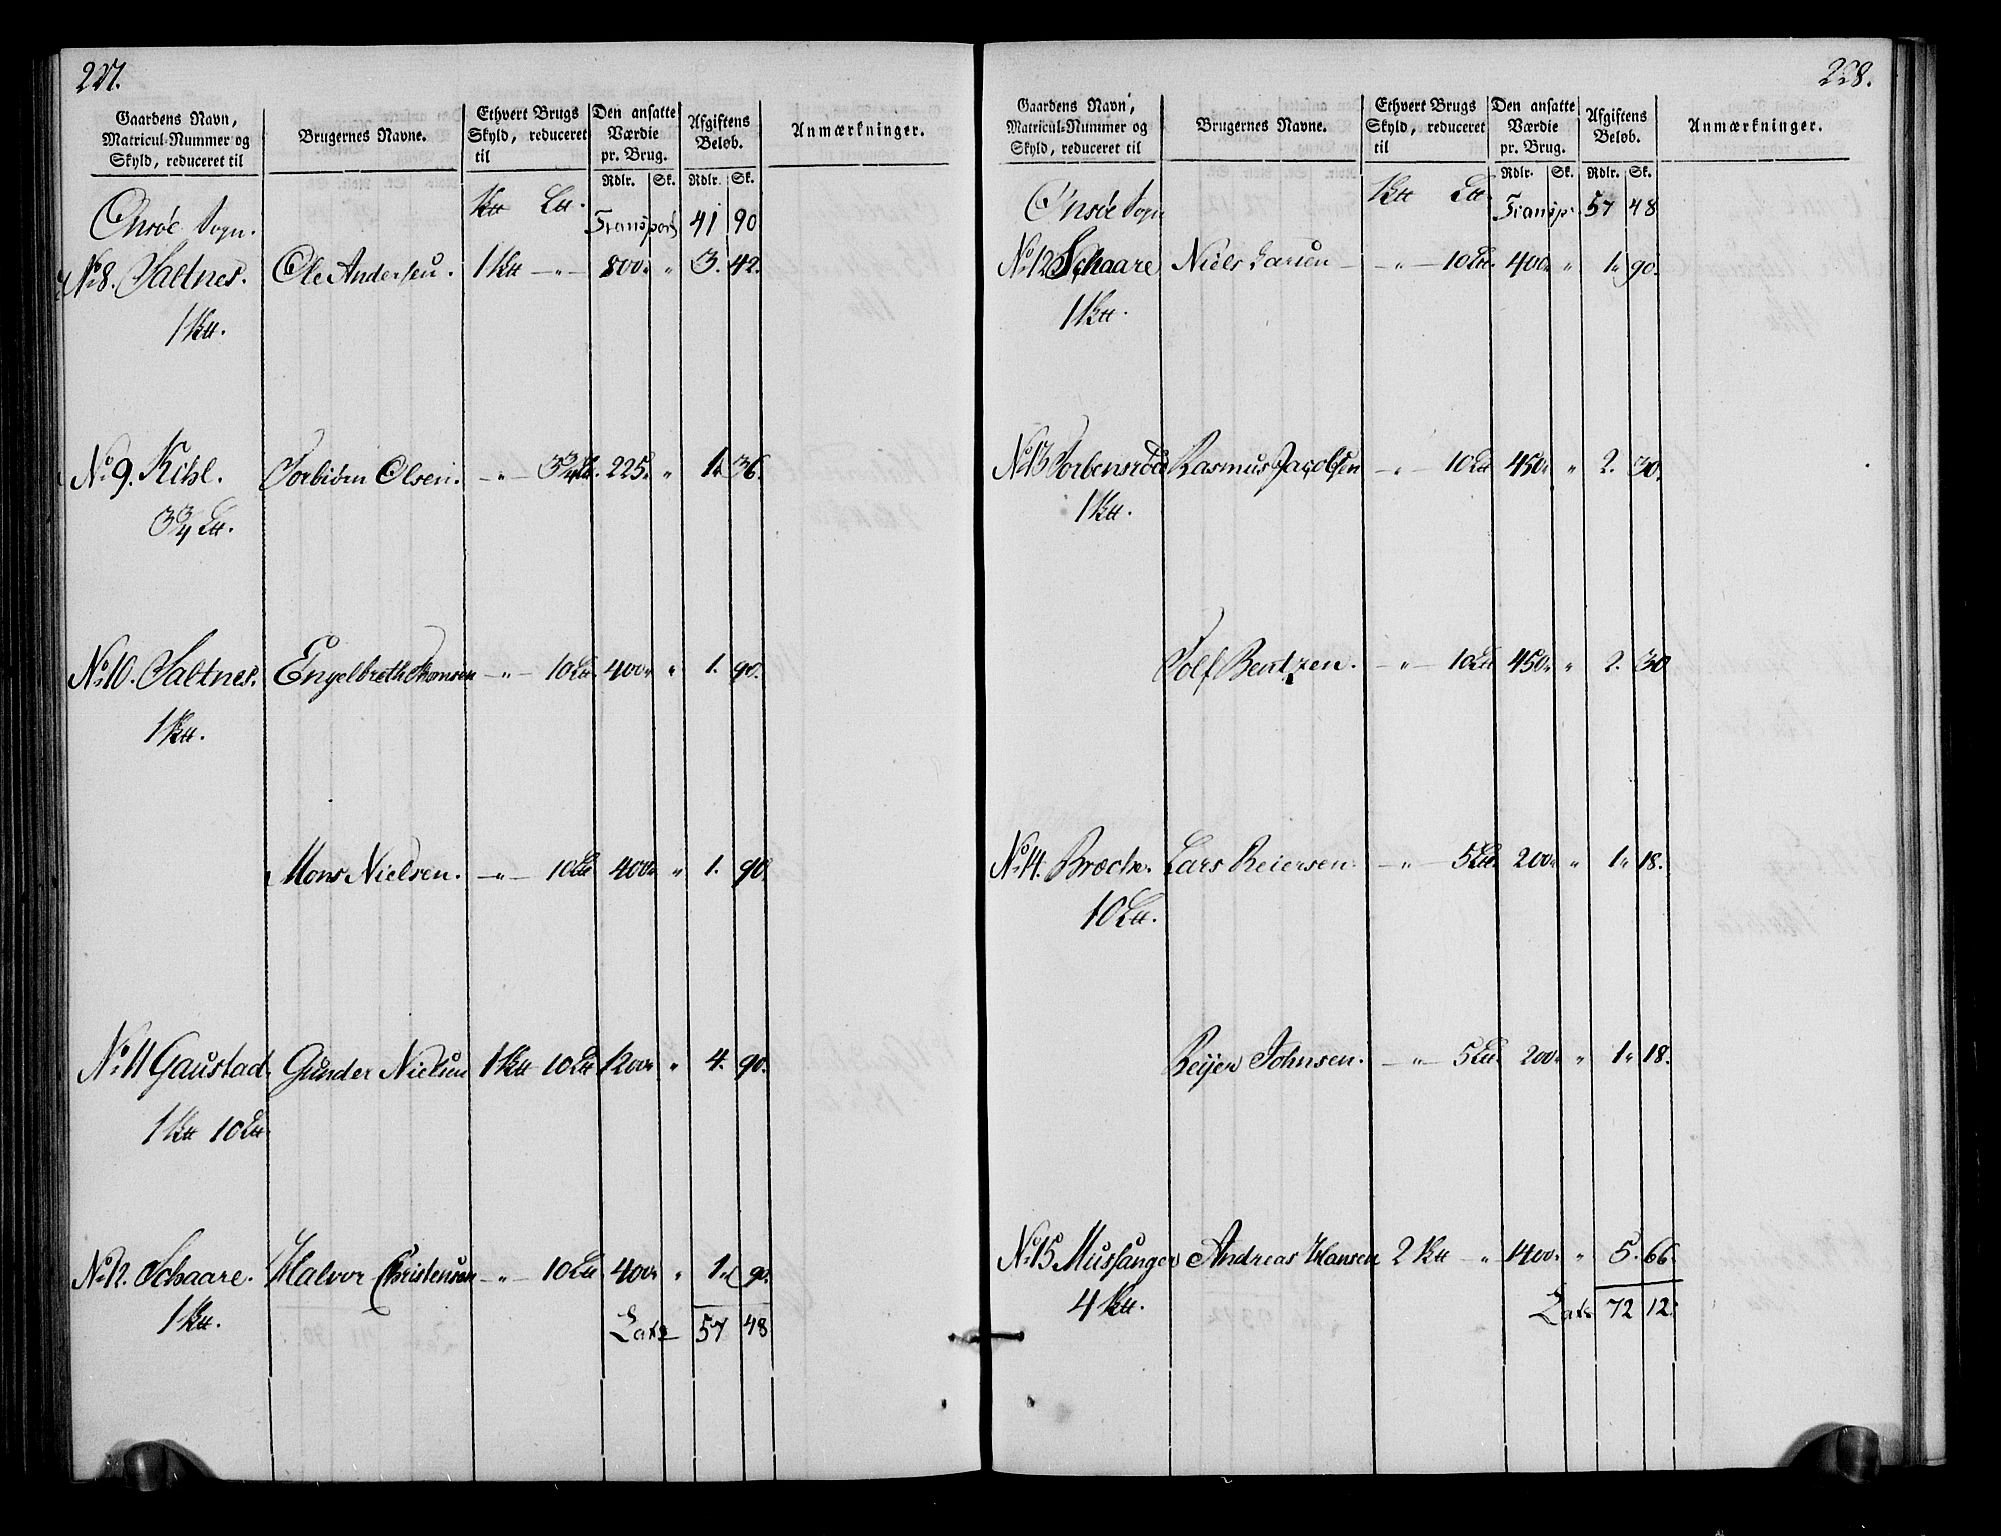 227.
Gaardens Navn, Matricul-Nummer og Skyld, reduceret til | Brugernes Navne. | Ethvert Brugs Skyld, reduceret til | Den ansatte Værdie pr. Brug. | Afgiftens Beløb. | Anmærkninger.
Rdlr. Sk. Rdlr. Sk.
Onsøe Sogn. Transport 41 90
No 8. Saltnes. Ole Andersen. 1 800 " 3. 42.
1
No 9. Kihl. Torbiørn Olsen. — " — 3¾ 225 " 1. 36.
3¾
No 10. Saltnes. Engelbreth Thomsen — " — 10 400 " 1. 90.
1
Mons Nielsen. — " — 10 400 " 1. 90.
No 11 Gaustad. Gunder Nielsen 1 10 1200 " 4. 90.
1 10
No 12. Schaare. Halvor Christensen — " — 10 400 " 1. 90.
1
Lats 57 48
228.
Gaardens Navn, Matricul-Nummer og Skyld, reduceret til | Brugernes Navne. | Ethvert Brugs Skyld, reduceret til | Den ansatte Værdie pr. Brug. | Afgiftens Beløb. | Anmærkninger.
Rdlr. Sk. Rdlr. Sk.
Onsøe Sogn Transp. 57 48
No 12 Schaare Niels Larsen — " — 10 400 " 1. 90.
1
No 13 Torbensrød Rasmus Jacobsen — " — 10 450 " 2. 30.
1
Tolf Bentzen. — " — 10 450 " 2. 30
No 14. Broche. Lars Reiersen. — " — 5 200 " 1. 18.
10
Reijer Johnsen. — " — 5 200 " 1. 18.
No 15 Andreas Hansen 2 " 1400 " 5. 66.
4
Lats 72 12.